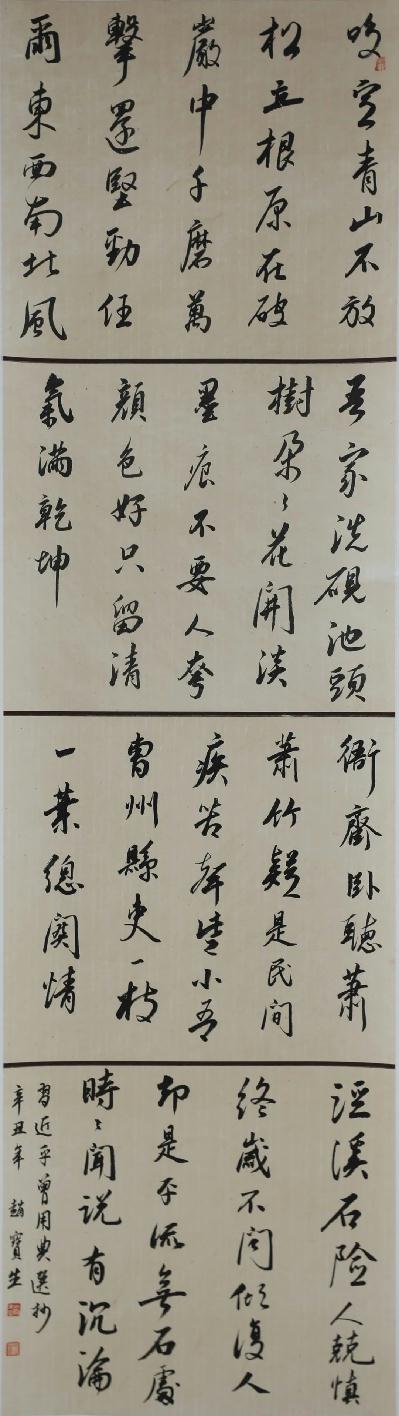 咬定青山不放
松立根原在破
巖中千磨萬
擊還堅勁任
爾東西南北風
吾家洗硯池頭
樹朵々花開淡
墨痕不要人夸
顏色好只留清
氣滿乾坤
衙齋卧聽蕭
蕭竹疑是民間
疾苦聲些小吾
曹州縣吏一枝
一葉總關情
涇溪石險人兢慎
終歲不聞傾復人
却是平流無石處
時々聞說有沉淪
習近平曾用典選抄
辛丑年 趙寶生